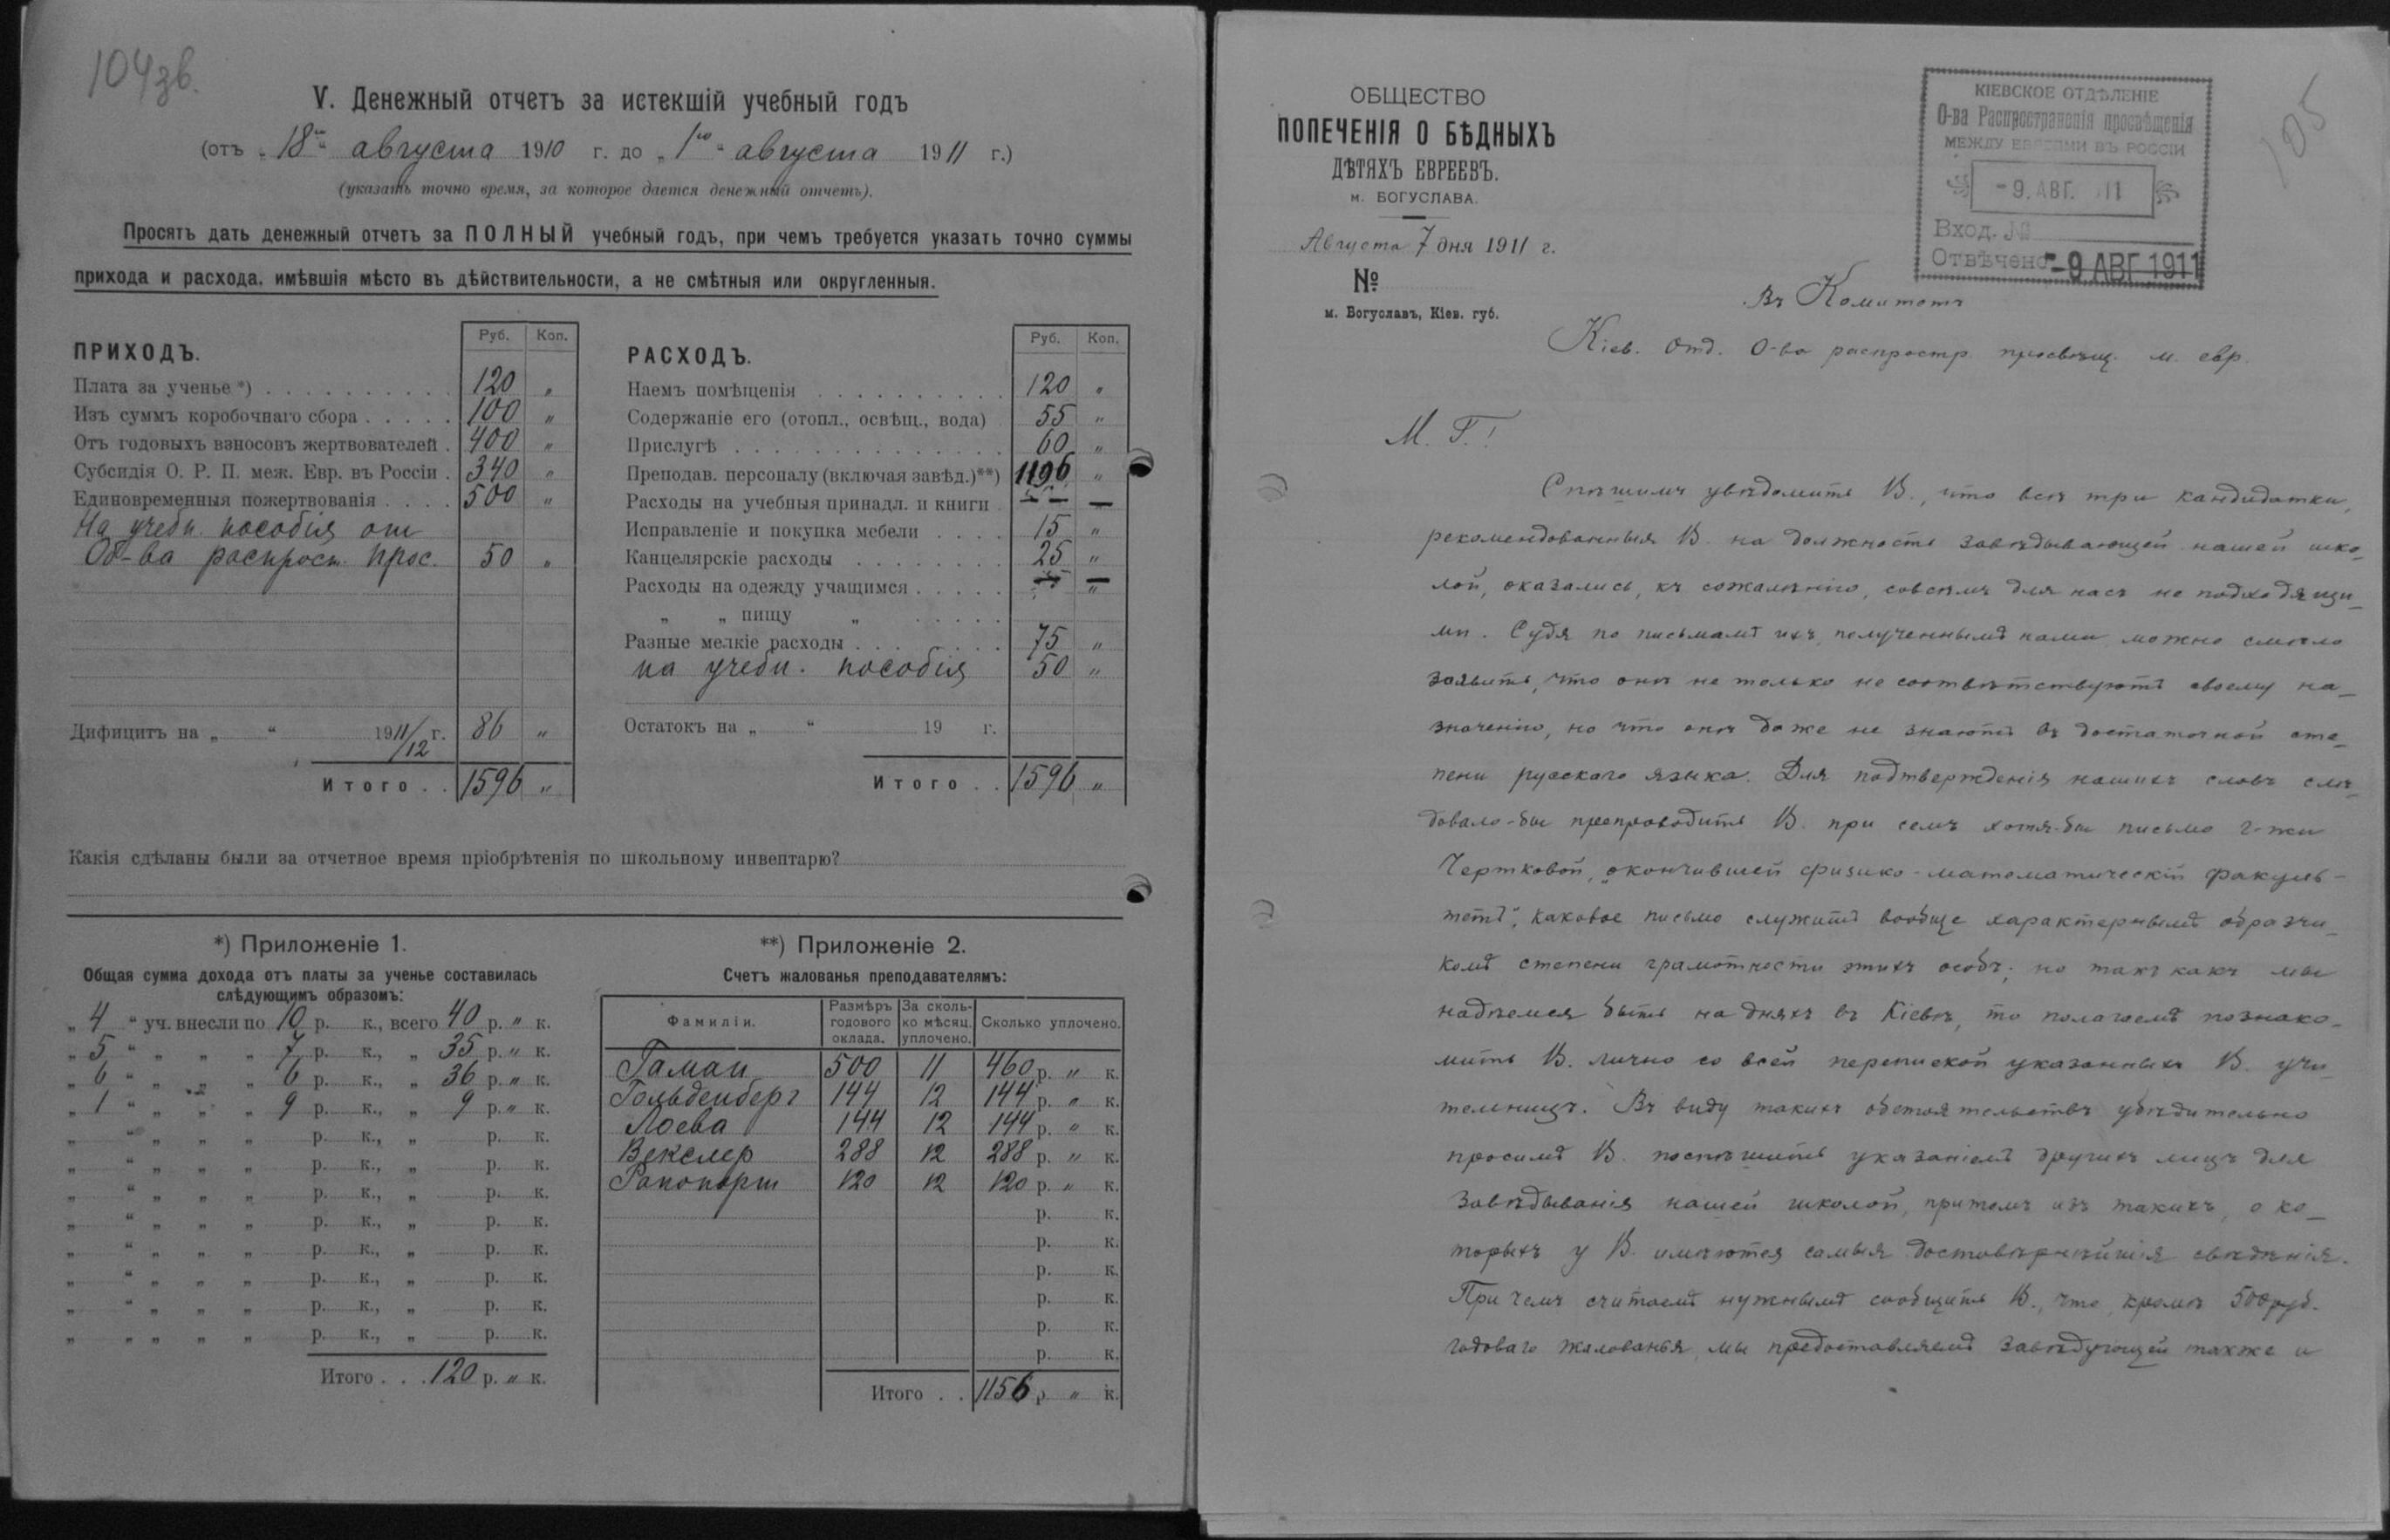 104зв.
V. Денежный отчетъ за истекшій учебный годъ
(отъ „18го“ августа 1910 г. до „1го“ августа 1911 г.)
(указать точно время, за которое дается денежный отчетъ).
Просятъ дать денежный отчетъ за ПОЛНЫЙ учебный годъ, при чемъ требуется указать точно суммы
прихода и расхода, имѣвшія мѣсто въ дѣйствительности, а не смѣтныя или округленныя.
ПРИХОДЪ. Руб. Коп.
Плата за ученье *) . . . 120 „
Изъ суммъ коробочнаго сбора . . . 100 „
Отъ годовыхъ взносовъ жертвователей . 400 „
Субсидія О. Р. П. меж. Евр. въ Россіи . 340 „
Единовременныя пожертвованія . . . 500 „
На учебн. пособія от
Об-ва распрост. Прос. 50 „
Дифицитъ на „ “ 1911/12 г. 86 „
Итого . . 1596 „
РАСХОДЪ. Руб. Коп.
Наемъ помѣщенія . . . 120 „
Содержаніе его (отопл., освѣщ., вода) 55 „
Прислугѣ . . . 60 „
Преподав. персоналу (включая завѣд.)**) 1196 „
Расходы на учебныя принадл. и книги . — —
Исправленіе и покупка мебели . . . 15 „
Канцелярскіе расходы . . . 25 „
Расходы на одежду учащимся . . . — —
„ „ пищу „ . . .
Разные мелкіе расходы . . . 75 „
на учебн. пособія 50 „
Остатокъ на „ “ 19 г.
Итого . . 1596 „
Какія сдѣланы были за отчетное время пріобрѣтенія по школьному инвентарю?
*) Приложеніе 1.
Общая сумма дохода отъ платы за ученье составилась
слѣдующимъ образомъ:
„ 4 “ уч. внесли по 10 р. к., всего 40 р. „ к.
„ 5 “ „ „ „ 7 р. к., „ 35 р. „ к.
„ 6 “ „ „ „ 6 р. к., „ 36 р. „ к.
„ 1 “ „ „ „ 9 р. к., „ 9 р. „ к.
„ “ „ „ „ р. к., „ р. к.
„ “ „ „ „ р. к., „ р. к.
„ “ „ „ „ р. к., „ р. к.
„ “ „ „ „ р. к., „ р. к.
„ “ „ „ „ р. к., „ р. к.
„ “ „ „ „ р. к., „ р. к.
„ “ „ „ „ р. к., „ р. к.
„ „ „ „ „ р. к., „ р. к.
Итого . . . 120 р. „ к.
**) Приложеніе 2.
Счетъ жалованья преподавателямъ:
Фамиліи. Размѣръ годового оклада. За сколь-ко мѣсяц. уплочено. Сколько уплочено.
Гаман 500 11 460 р. „ к.
Гольденберг 144 12 144 р. „ к.
Лоева 144 12 144 р. „ к.
Векслер 288 12 288 р. „ к.
Рапопорт 120 12 120 р. „ к.
р. к.
р. к.
р. к.
р. к.
р. к.
р. к.
Итого . . 1156 р. „ к.
105
ОБЩЕСТВО
ПОПЕЧЕНІЯ О БѢДНЫХЪ
ДѢТЯХЪ ЕВРЕЕВЪ.
м. БОГУСЛАВА.
Августа 7 дня 1911 г.
№
м. Богуславъ, Кіев. губ.
КІЕВСКОЕ ОТДѢЛЕНІЕ
О-ва Распространенія просвѣщенія
МЕЖДУ ЕВРЕЯМИ ВЪ РОССІИ
-9. АВГ. 11
Вход. №
Отвѣчено -9 АВГ 1911
Въ Комитетъ
Кіев. Отд. О-ва распростр. просвѣщ. м. евр.
М. Г.!
Спѣшимъ увѣдомить В., что всѣ три кандидатки,
рекомендованныя В. на должность завѣдывающей нашей шко-
лой, оказались, къ сожалѣнію, совсѣмъ для насъ не подходящи-
ми. Судя по письмамъ ихъ, полученнымъ нами, можно смѣло
заявить, что онѣ не только не соотвѣтствуютъ своему на-
значенію, но что онѣ даже не знаютъ въ достаточной сте-
пени русскаго языка. Для подтвержденія нашихъ словъ слѣ-
довало-бы препроводить В. при семъ хотя-бы письмо г-жи
Чертковой, „окончившей физико-математическій факуль-
тетъ“, каковое письмо служитъ вообще характернымъ образчи-
комъ степени грамотности этихъ особъ; но такъ какъ мы
надѣемся быть на дняхъ въ Кіевѣ, то полагаемъ познако-
мить В. лично со всей перепиской указанныхъ В. учи-
тельницъ. Въ виду такихъ обстоятельствъ убѣдительно
просимъ В. поспѣшить указаніемъ другихъ лицъ для
завѣдыванія нашей школой, притомъ изъ такихъ, о ко-
торыхъ у В. имѣются самыя достовѣрнѣйшія свѣдѣнія.
При чемъ считаемъ нужнымъ сообщить В., что, кромѣ 500 руб.
годоваго жалованья, мы предоставляемъ завѣдующей также и